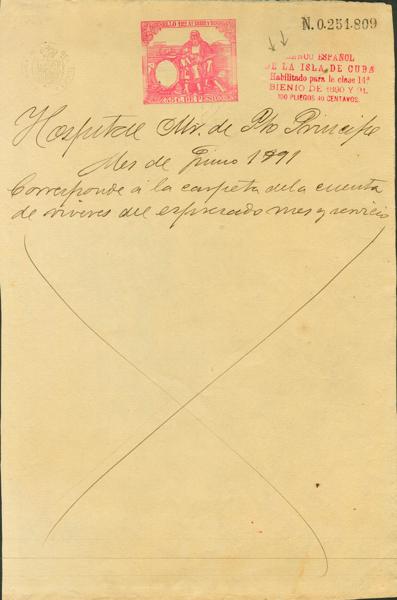 N.0.251.809
BANCO ESPAÑOL
DE LA ISLA DE CUBA
Habilitado para la clase 14ª
BIENIO DE 1890 Y 91.
100 PLIEGOS 40 CENTAVOS.
Hospital Mr. de Pto Principe
Mes de Junio 1891
Corresponde á la carpeta de la cuenta
de viveres del espresado mes y servicio